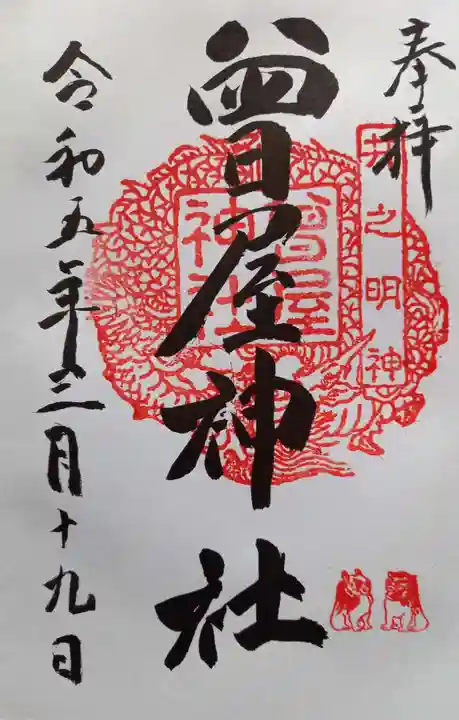 奉拝
井之明神
曾屋神社
曾屋神社
令和五年三月十九日